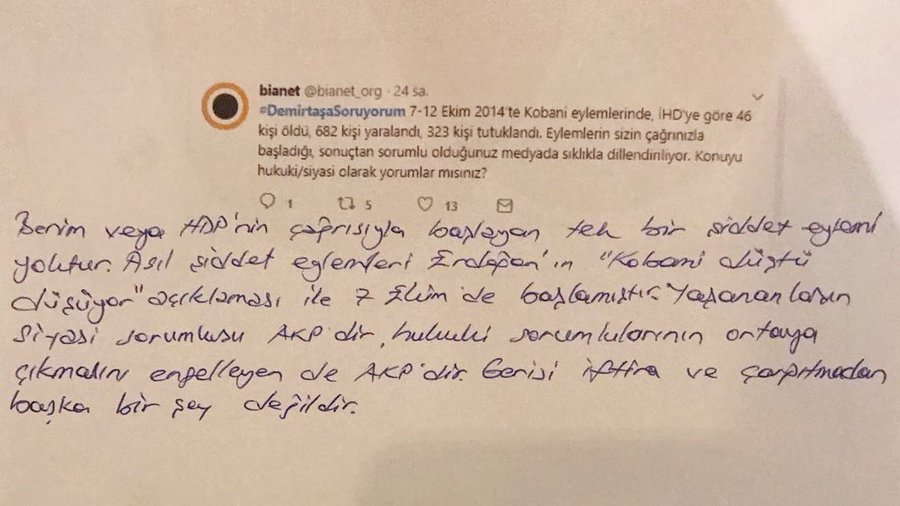 bianet @bianet_org · 24 sa.
#DemirtaşaSoruyorum 7-12 Ekim 2014'te Kobani eylemlerinde, İHD'ye göre 46
kişi öldü, 682 kişi yaralandı, 323 kişi tutuklandı. Eylemlerin sizin çağrınızla
başladığı, sonuçtan sorumlu olduğunuz medyada sıklıkla dillendiriliyor. Konuyu
hukuki/siyasi olarak yorumlar mısınız?
1 5 13
Benim veya HDP'nin çağrısıyla başlayan tek bir şiddet eylemi
yoktur. Asıl şiddet eylemleri Erdoğan'ın "Kobani düştü
düşüyor" açıklaması ile 7 Ekim'de başlamıştır. Yaşananların
siyasi sorumlusu AKP'dir, hukuki sorumlularının ortaya
çıkmasını engelleyen de AKP'dir. Gerisi iftira ve çarpıtmadan
başka bir şey değildir.